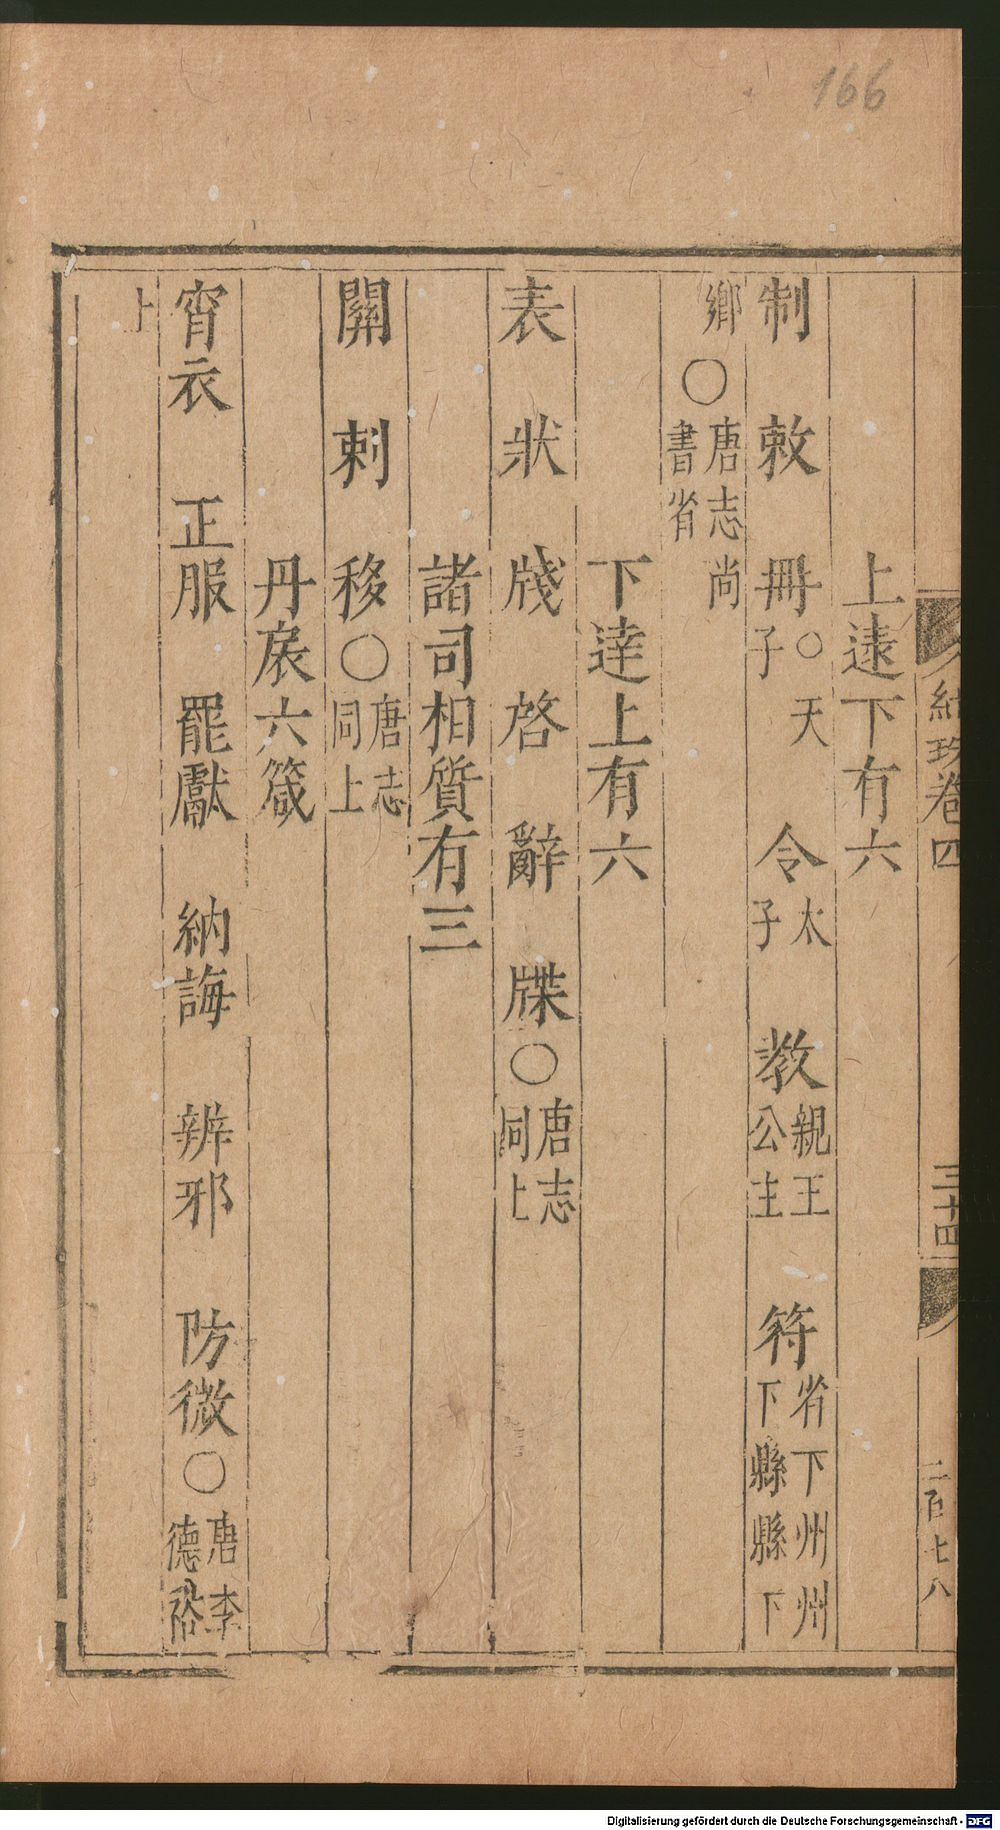 166
紀玫卷四 三十四 二百七八
上逺下有六
制 敕 冊○天子 令太子 教親王公主 符省下州州下縣縣下
鄉○唐志尚書省
下達上有六
表 狀 牋 啓 辭 牒○唐志同上
諸司相質有三
關 刺 移○唐志同上
丹扆六箴
宵衣 正服 罷獻 納誨 辨邪 防微○唐李德裕
上
Digitalisierung gefördert durch die Deutsche Forschungsgemeinschaft - DFG